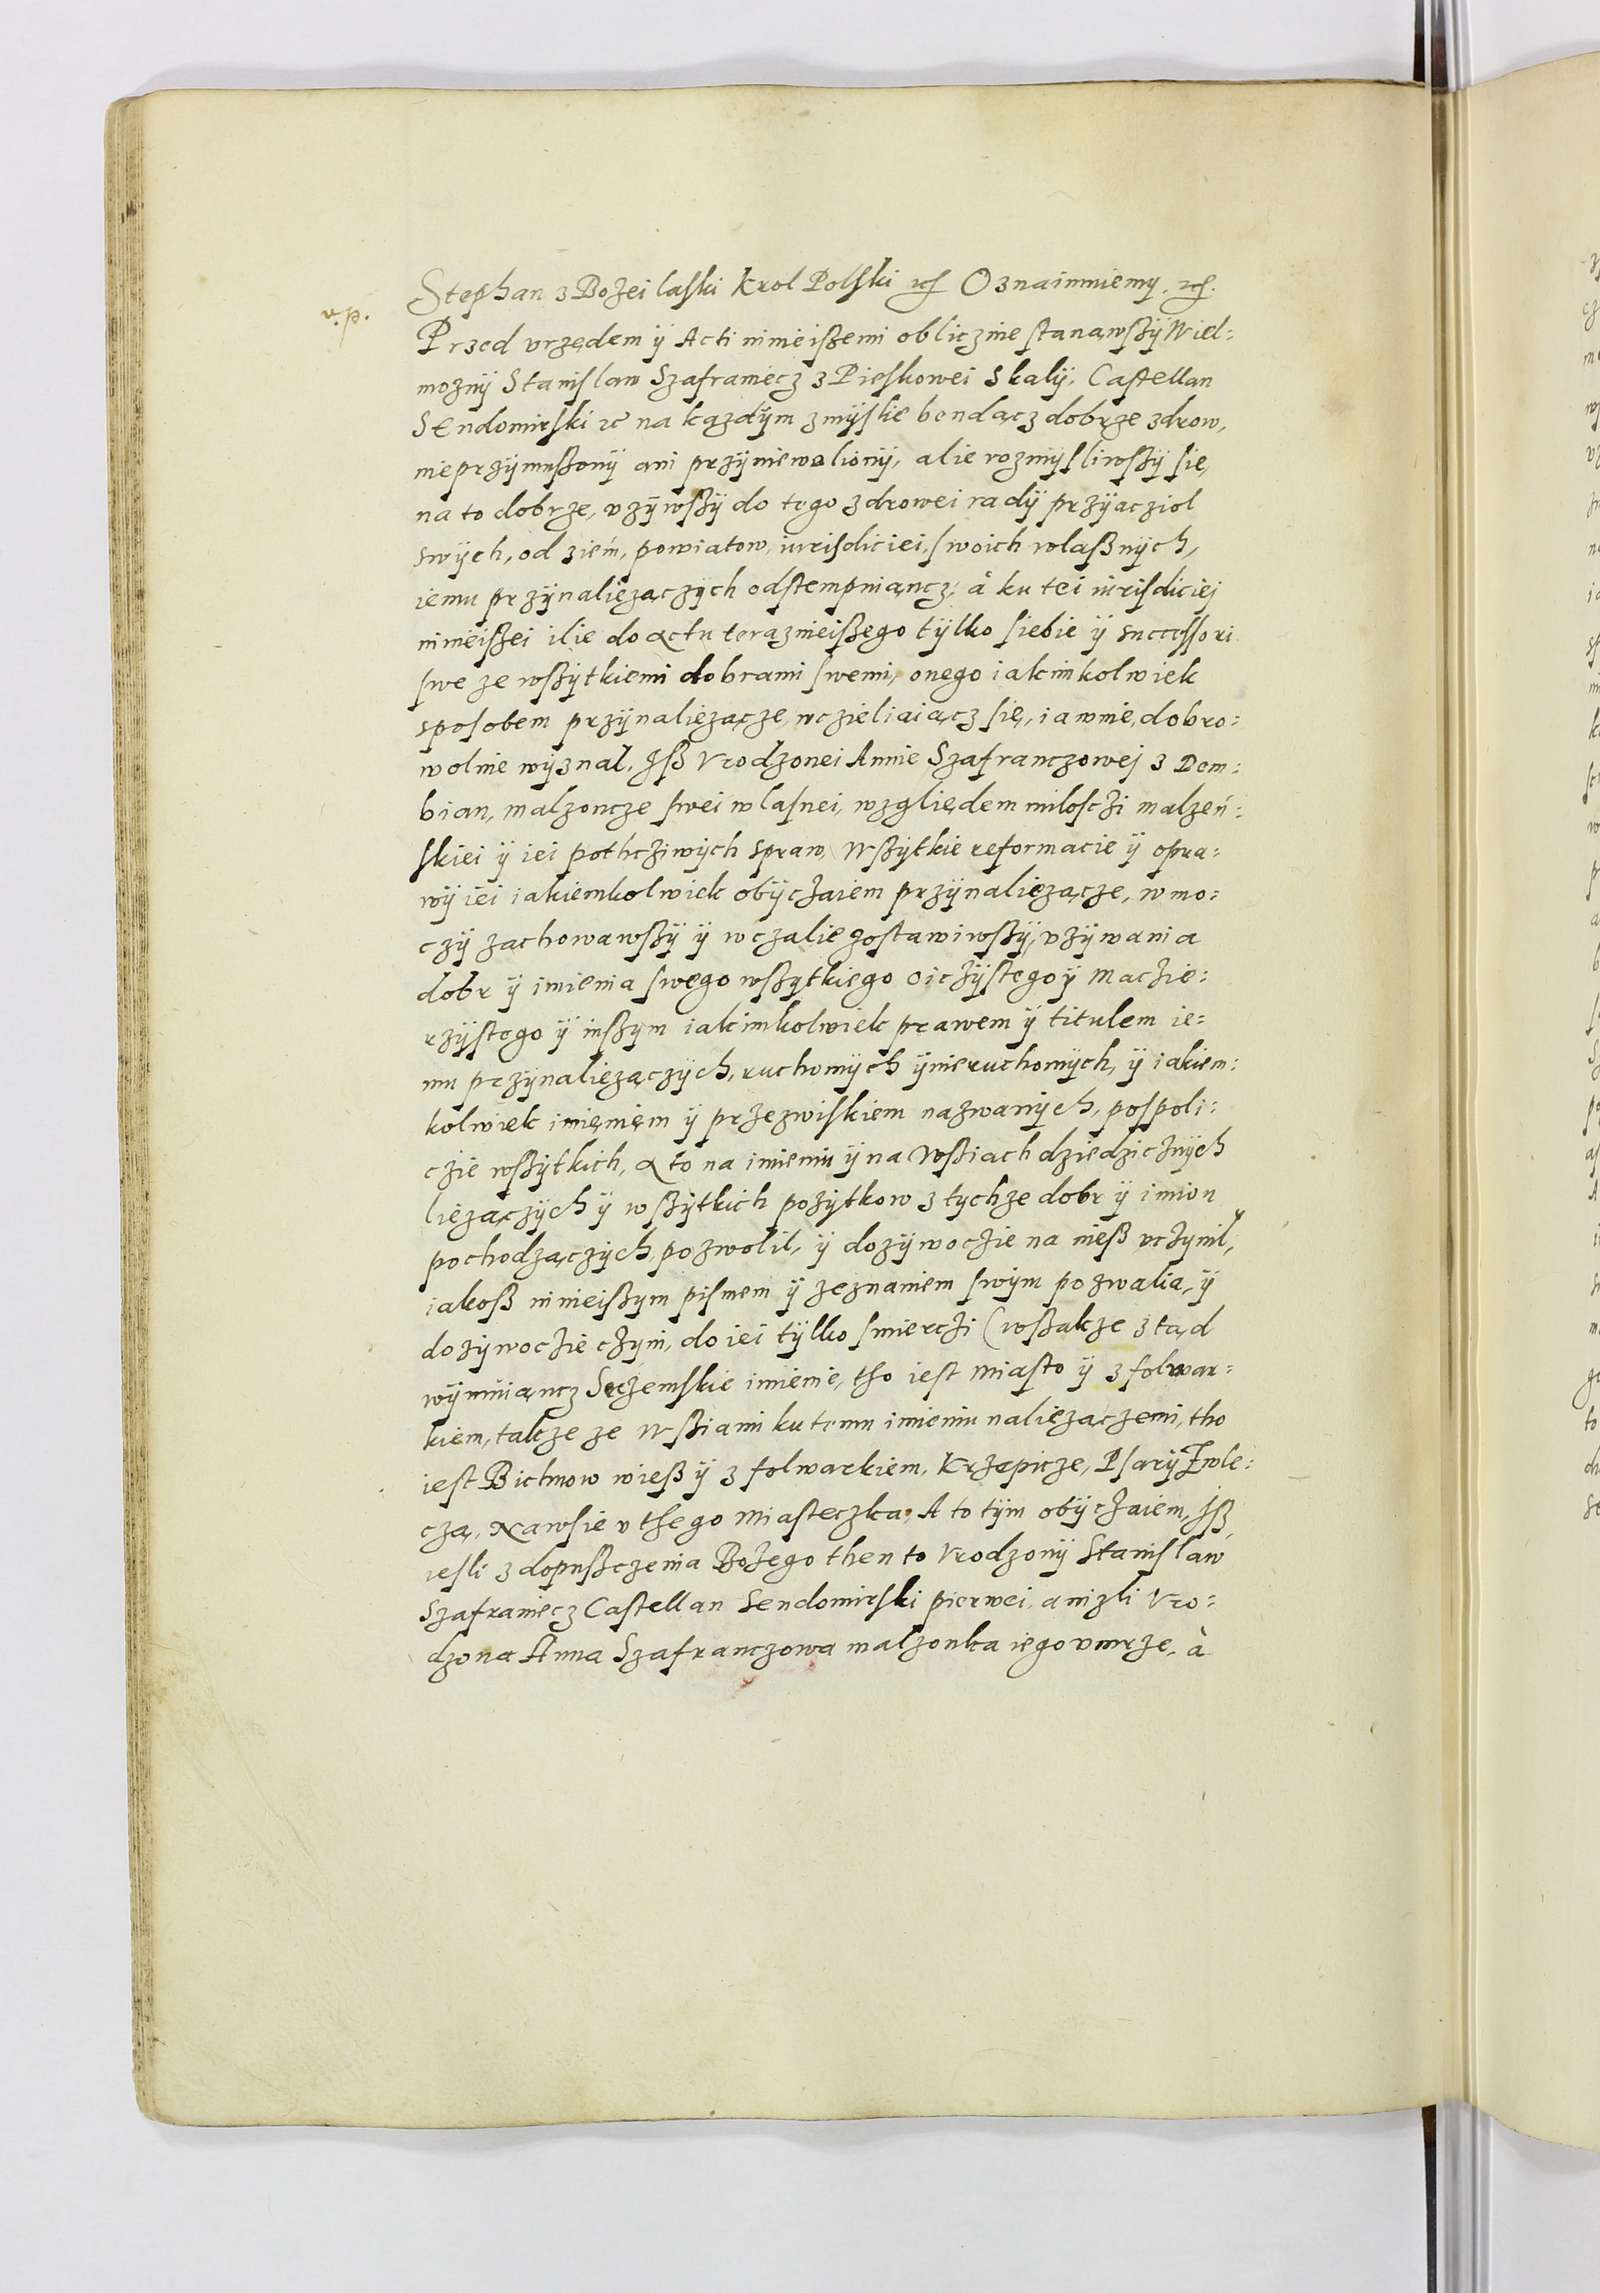 Stephan z Bożei laski Krol Polski etc. Oznaimniemy. etc.
v. p.
Przed vrzędem ÿ Acti ninieiszemi oblicznie stanąwszÿ Wiel:
moznÿ Stanislaw Szafraniecz z Pieskowei Skalÿ, Castellan
Sendomirski etc na kazdÿm zmÿslie bendącz dobrze zdrow,
nieprzÿmuszonÿ ani przÿniewolionÿ, alie rozmÿsliwszÿ się,
na to dobrze, vzÿwszÿ do tego zdrowei radÿ przÿacziol
swÿch, od ziem, powiatow, iurisdiciei, swoich wlasznÿch,
iemu przÿnalięzączÿch odstempniąncz, à ku tei iurisdiciej
ninieiszei ilie do actu terazniejszego tÿlko siebie ÿ successori
swe ze wszÿtkiemi dobrami swemi, onego iakimkolwiek
sposobem przÿnaliezącze, wczieliaiącz się, iawnie, dobro:
wolnie wÿznal. Isz Vrodzonei Annie Szafranczowej z Dem:
bian, malzoncze swei wlasnei, względem miloschi malzeń:
skiei ÿ iei pothcziwÿch spraw, Wszÿtkie reformacie ÿ opra:
wÿ iei iakiemkolwiek obÿczaiem przÿnaliezącze, w mo:
czÿ zachowawszÿ ÿ wczalie zostawiwszÿ, vzÿwania
dobr ÿ imienia swego wszÿtkiego oiczÿstego ÿ Maczie:
rzÿstego ÿ inszym iakimkolwiek prawem ÿ titulem ie:
mu przÿnaliezączÿch, ruchomÿch ÿ nieruchomÿch, ÿ iakiem:
kolwiek imieniem ÿ przezwiskiem nazwanÿch, pospoli:
czie wszÿtkich, a to na imieniu ÿ na Wsziach dziedzicznÿch
liezączÿch ÿ wszÿtkich pozÿtkow z tychze dobr ÿ imion
pochodzączÿch, pozwolil, ÿ dozÿwoczie na niesz vczÿnil,
iakosz ninieiszym pismem ÿ zeznaniem swÿm pozwalia, ÿ
dozÿwoczie czÿni, do iei tÿlko smierczi (wszakze ztąd
wÿmuiąncz Seczemskie imienie, tho iest Miasto ÿ z folwar:
kiem, takze ze Wsziami ku temu imieniu naliezączemi, tho
iest Bichnow wiesz ÿ z folwarkiem, Krzepicze, Psarÿ Zwle:
cza, Nawsie v thego Miasteczka, A to tÿm obÿczaiem, Isz
iesli z dopuszczenia Bożego then to Vrodzonÿ Stanislaw
Szafraniecz Castellan Sendomirski pierwei, anizli Vro:
dzona Anna Szafranczowa malzonka iego vmrze, à